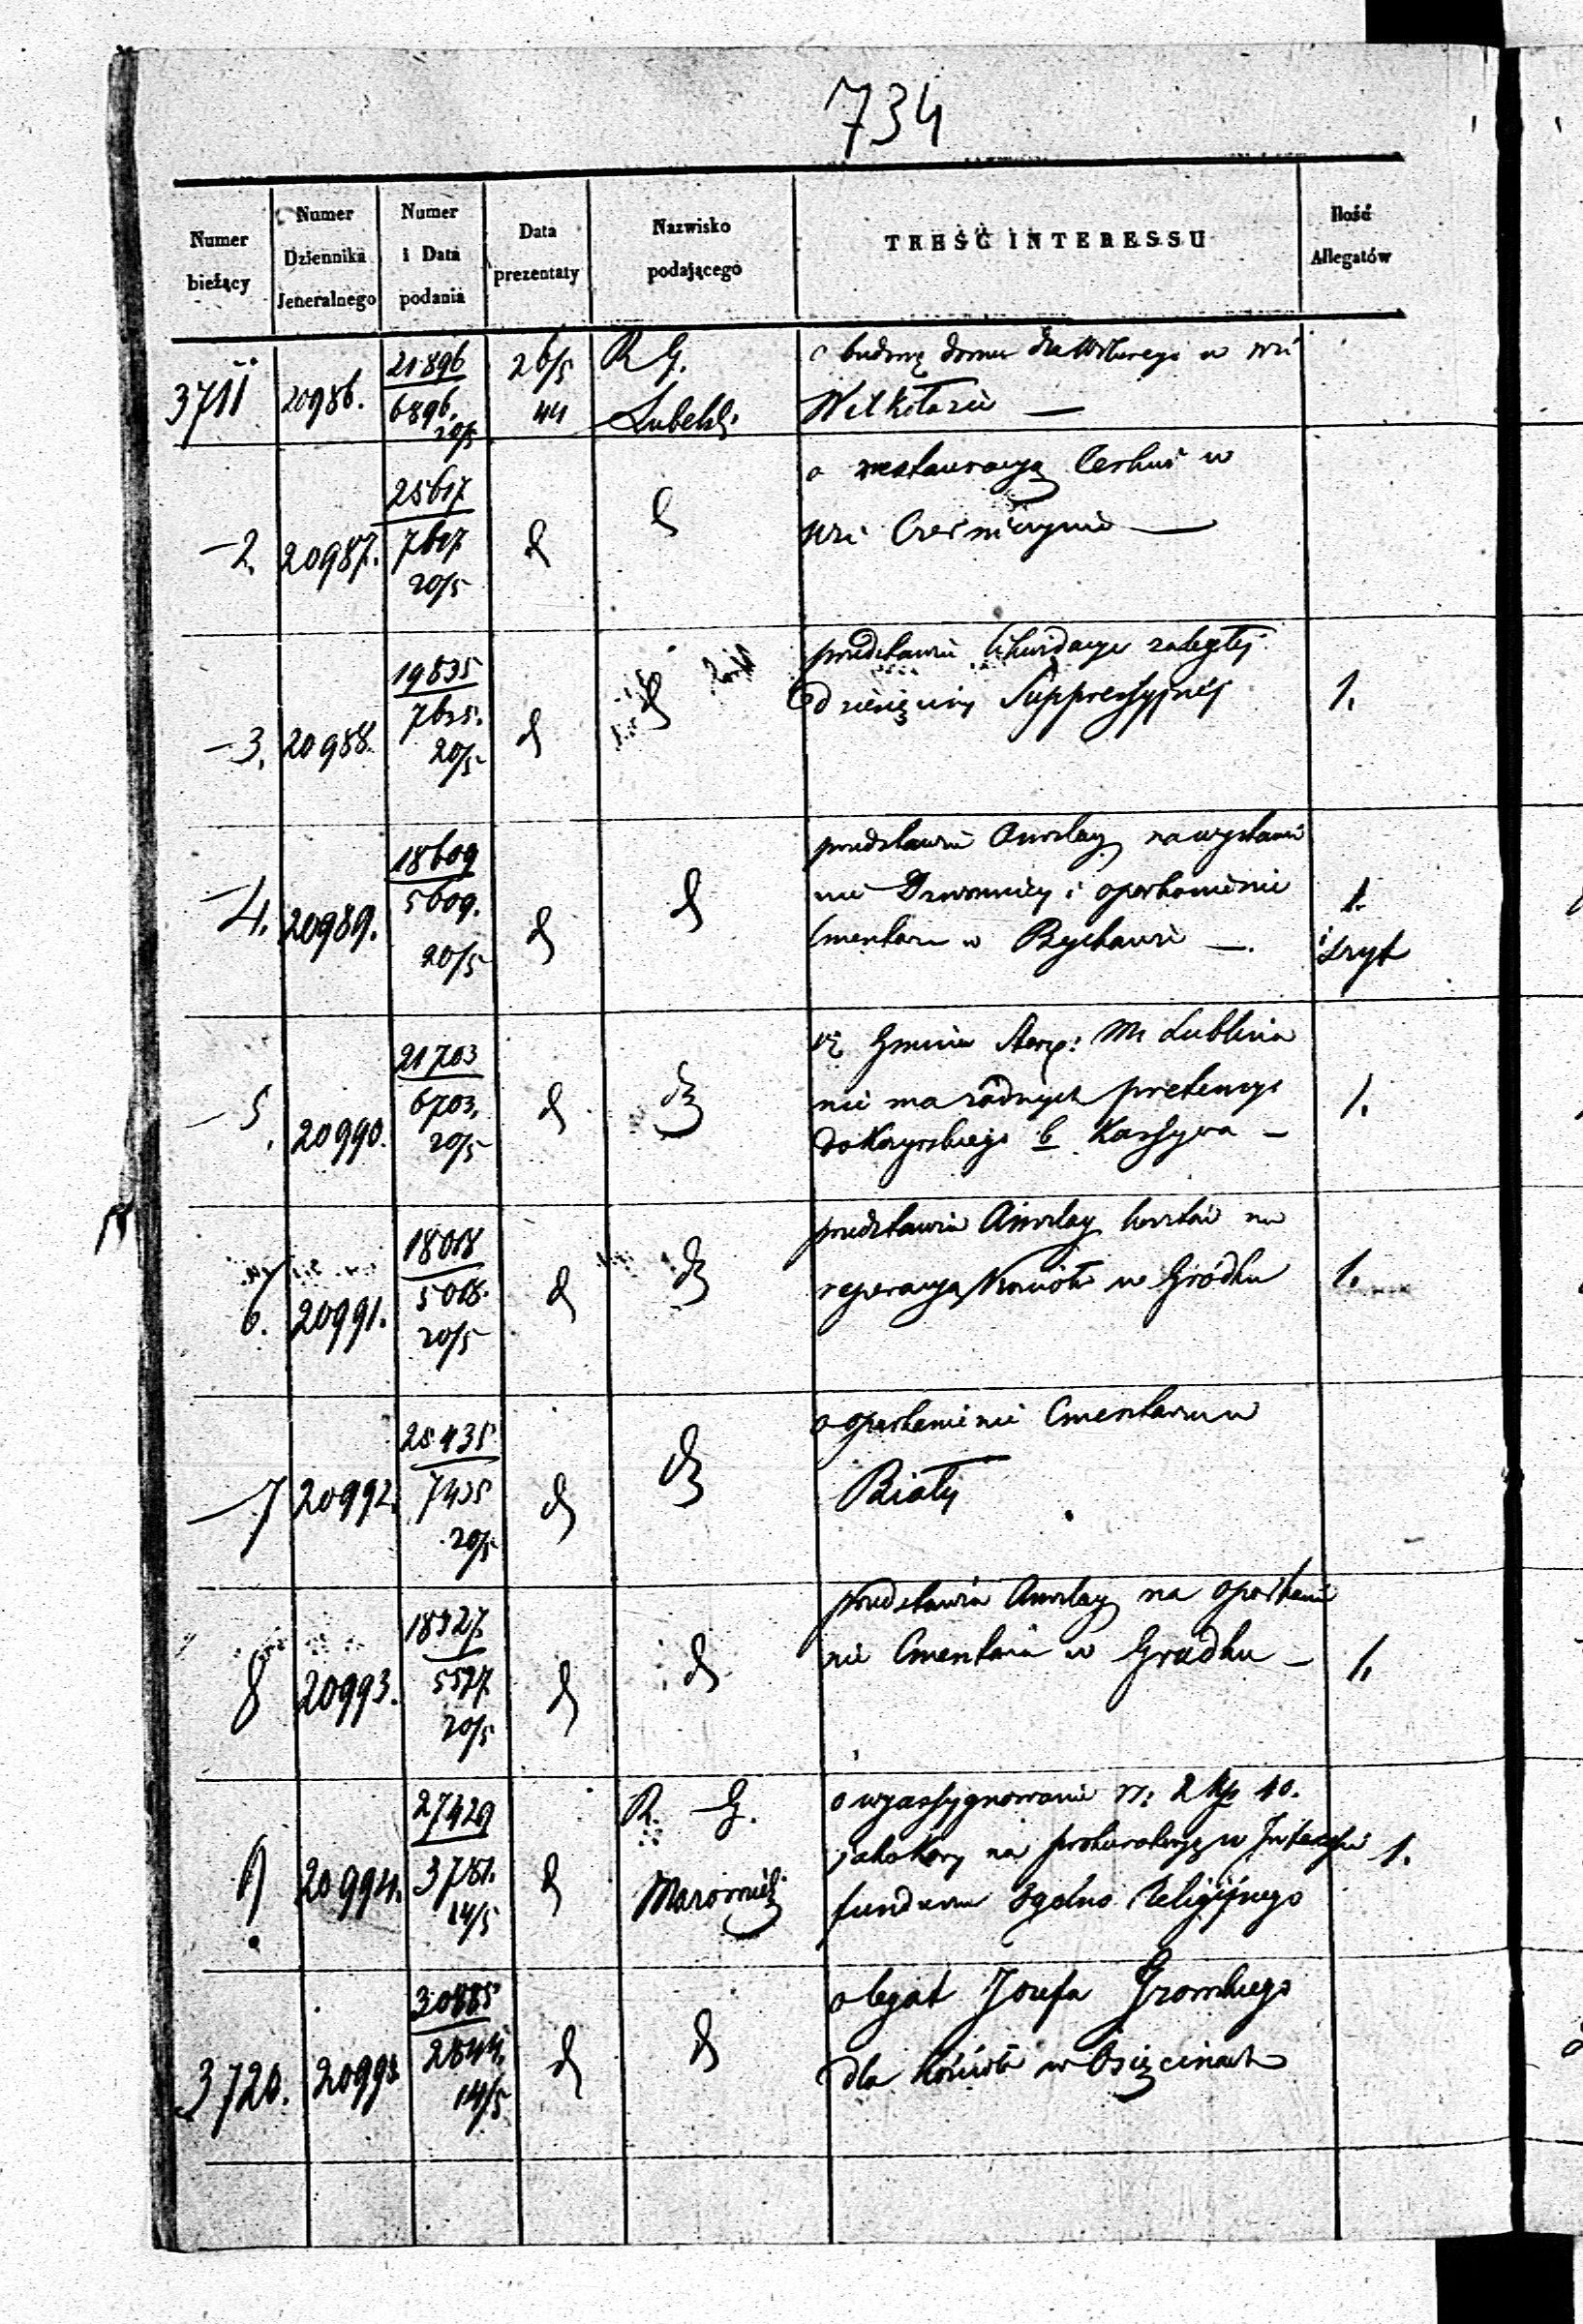 734
Numer bieżący
Numer Dziennika Jeneralnego
Numer i Data podania
Data prezentaty
Nazwisko podającego
TREŚĆ INTERESSU
Ilość Allegatów
3711 20986. 21896 26/5 R G. o budowę domu dla w wsi
6896. 44 Lubelski Wilkołazie —
20/5
25617 o restauracyą Cerkwi w
–2. 20987. 7617 d d wsi Cześnikach —
20/5
19835 przedstawia likwidacye zaległej
–3. 20988. 7835. d d dziesięciny Suppressyjnej 1.
20/5
18609 przedstawia Anszlag na wystawie
–4. 20989. 5609. d d nie Dzwonnicy i oparkanienie 1.
20/5 Cmentarza w Bychawie —. i zryt
21703 iż Gmina Starz: M. Lublina
–5. 20990. 6703. d d nie ma żadnych pretensyi 1.
20/5 do b Kassyera –
18018 przedstawia Anszlag kosztów na
6. 20991. 5018. d d reperacyą Kościoła w Gródku 1.
20/5
25435 o oparkanienie Cmentarza w
–7 20992. 7435 d d Biały
20/5
18527. przedstawia Anszlag na oparkanie
8 20993. 5527. d d nie Cmentarza w Gródku – 1.
20/5
27429 R. G. o wyassygnowanie rs: 2 kp 40.
9 20994. 3781. d Mazowiec jako na prokuratoryę w Interesie 1.
14/5 funduszu Religijnego
30885 o legat Józefa
3720. 20995 2844. d d dla kościoła w Osięcinach
14/5